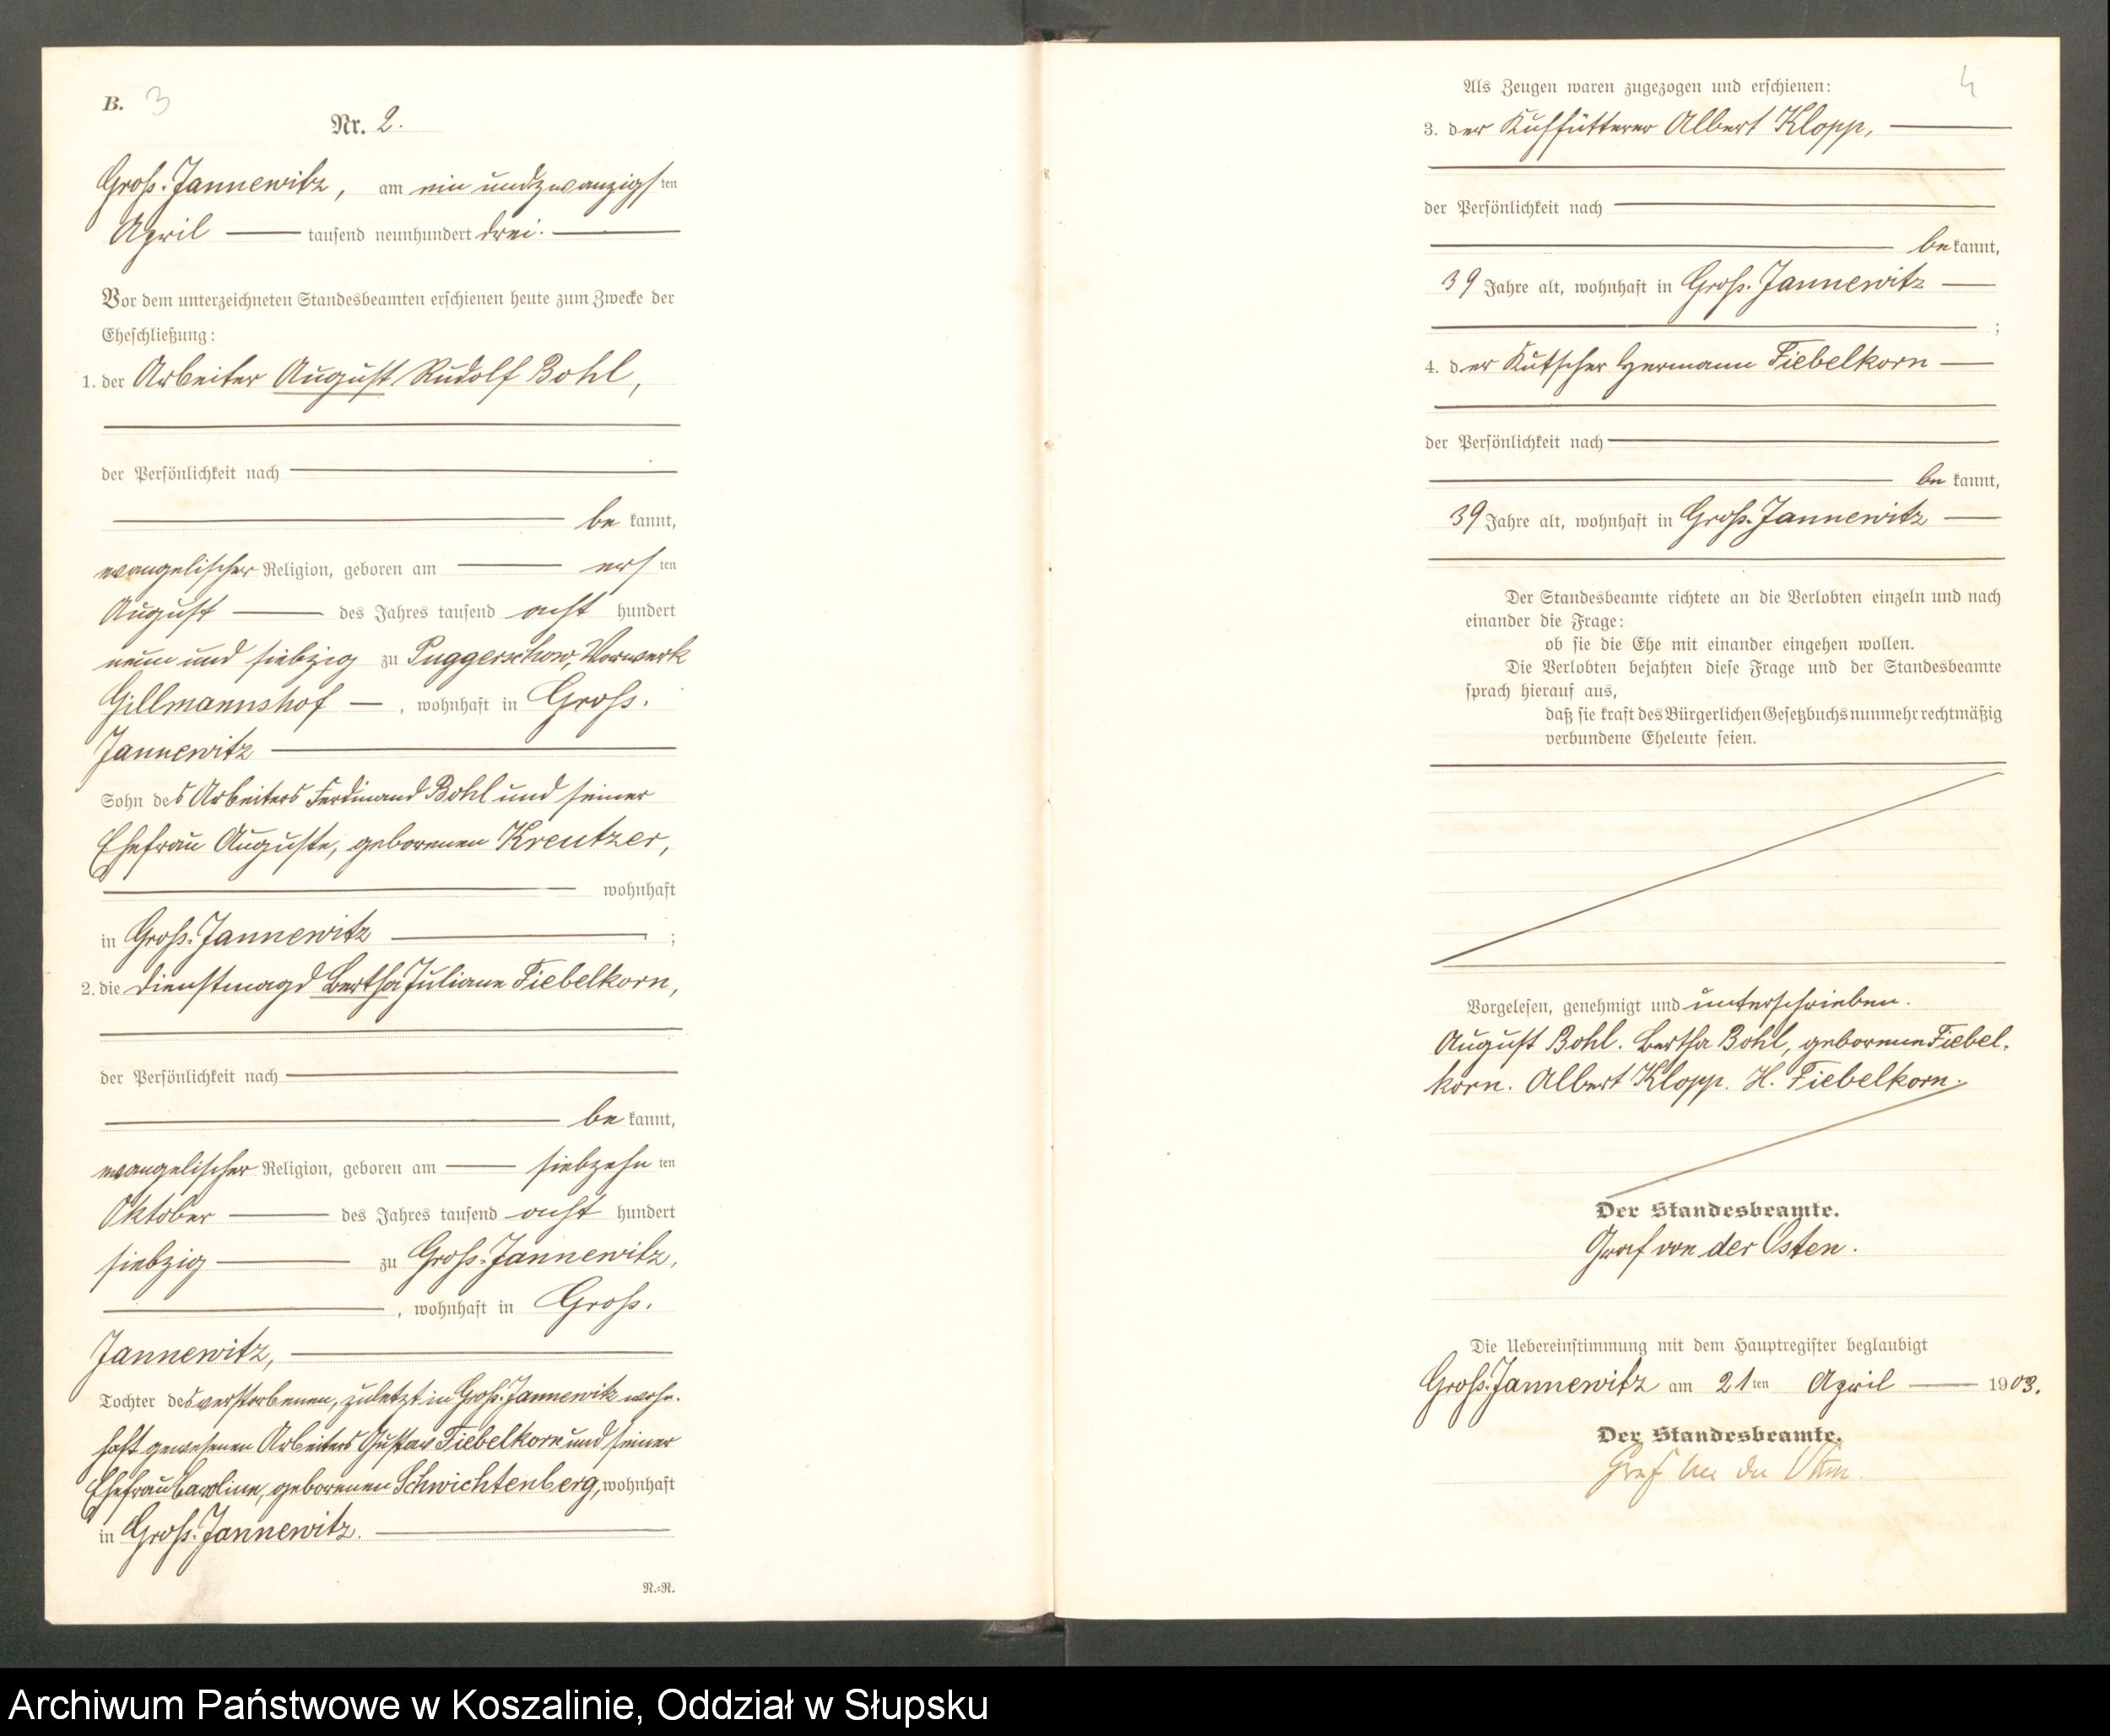 B. 3
Nr. 2.
Groß-Jannewitz, am ein und zwanzigsten
April tausend neunhundert drei.
Vor dem unterzeichneten Standesbeamten erschienen heute zum Zwecke der
Eheschließung:
1. der Arbeiter August Rudolf Bohl,
der Persönlichkeit nach
be kannt,
evangelischer Religion, geboren am ersten
August des Jahres tausend acht hundert
neun und siebzig zu Puggerschow, Vorwerk
Gillmannshof, wohnhaft in Groß-
Jannewitz
Sohn des Arbeiters Ferdinand Bohl und seiner
Ehefrau Auguste, geborenen Kreutzer,
wohnhaft
in Groß-Jannewitz ;
2. die Dienstmagd Bertha Juliane Fiebelkorn,
der Persönlichkeit nach
be kannt,
evangelischer Religion, geboren am siebzehnten
Oktober des Jahres tausend acht hundert
siebzig zu Groß-Jannewitz,
, wohnhaft in Groß-
Jannewitz,
Tochter des verstorbenen, zuletzt in Groß-Jannewitz wohn-
haft gewesenen Arbeiters Gustav Fiebelkorn und seiner
Ehefrau Caroline, geborenen Schwichtenberg, wohnhaft
in Groß-Jannewitz.
N.-R.
4
Als Zeugen waren zugezogen und erschienen:
3. der Kuhfütterer Albert Klopp,
der Persönlichkeit nach
be kannt,
39 Jahre alt, wohnhaft in Groß-Jannewitz
;
4. der Kutscher Hermann Fiebelkorn
der Persönlichkeit nach
be kannt,
39 Jahre alt, wohnhaft in Groß-Jannewitz
Der Standesbeamte richtete an die Verlobten einzeln und nach
einander die Frage:
ob sie die Ehe mit einander eingehen wollen.
Die Verlobten bejahten diese Frage und der Standesbeamte
sprach hierauf aus,
daß sie kraft des Bürgerlichen Gesetzbuchs nunmehr rechtmäßig
verbundene Eheleute seien.
Vorgelesen, genehmigt und unterschrieben.
August Bohl. Bertha Bohl, geborene Fiebel-
korn. Albert Klopp. H. Fiebelkorn.
Der Standesbeamte.
Graf von der Osten.
Die Uebereinstimmung mit dem Hauptregister beglaubigt
Groß-Jannewitz am 21ten April 1903.
Der Standesbeamte.
Graf von der Osten.
Archiwum Państwowe w Koszalinie, Oddział w Słupsku